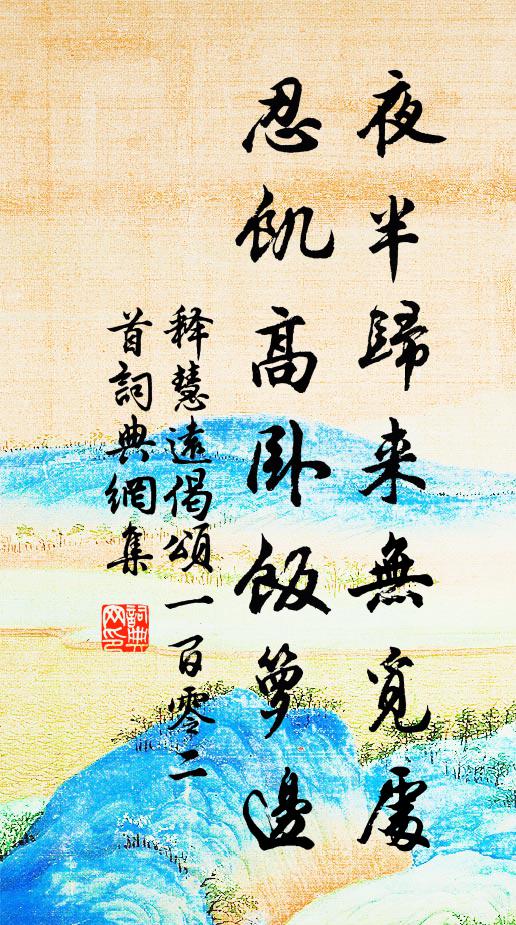 夜半歸来無覓處
忍飢高卧飯籮邊
釋慧遠偈頌一百零二
首詞典網集
詞典
网